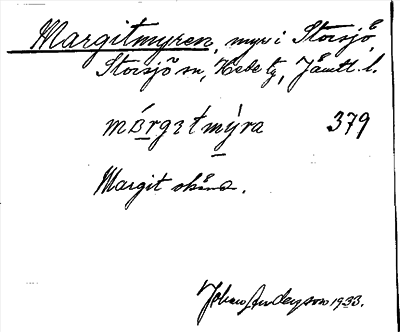 Margitmyren, myr i Storsjö,
Storsjö sn, Hede tg, Jämtl. l.
màrgɪtmy̍ra 379
Margit okänd.
Johan Anderzson 1933.